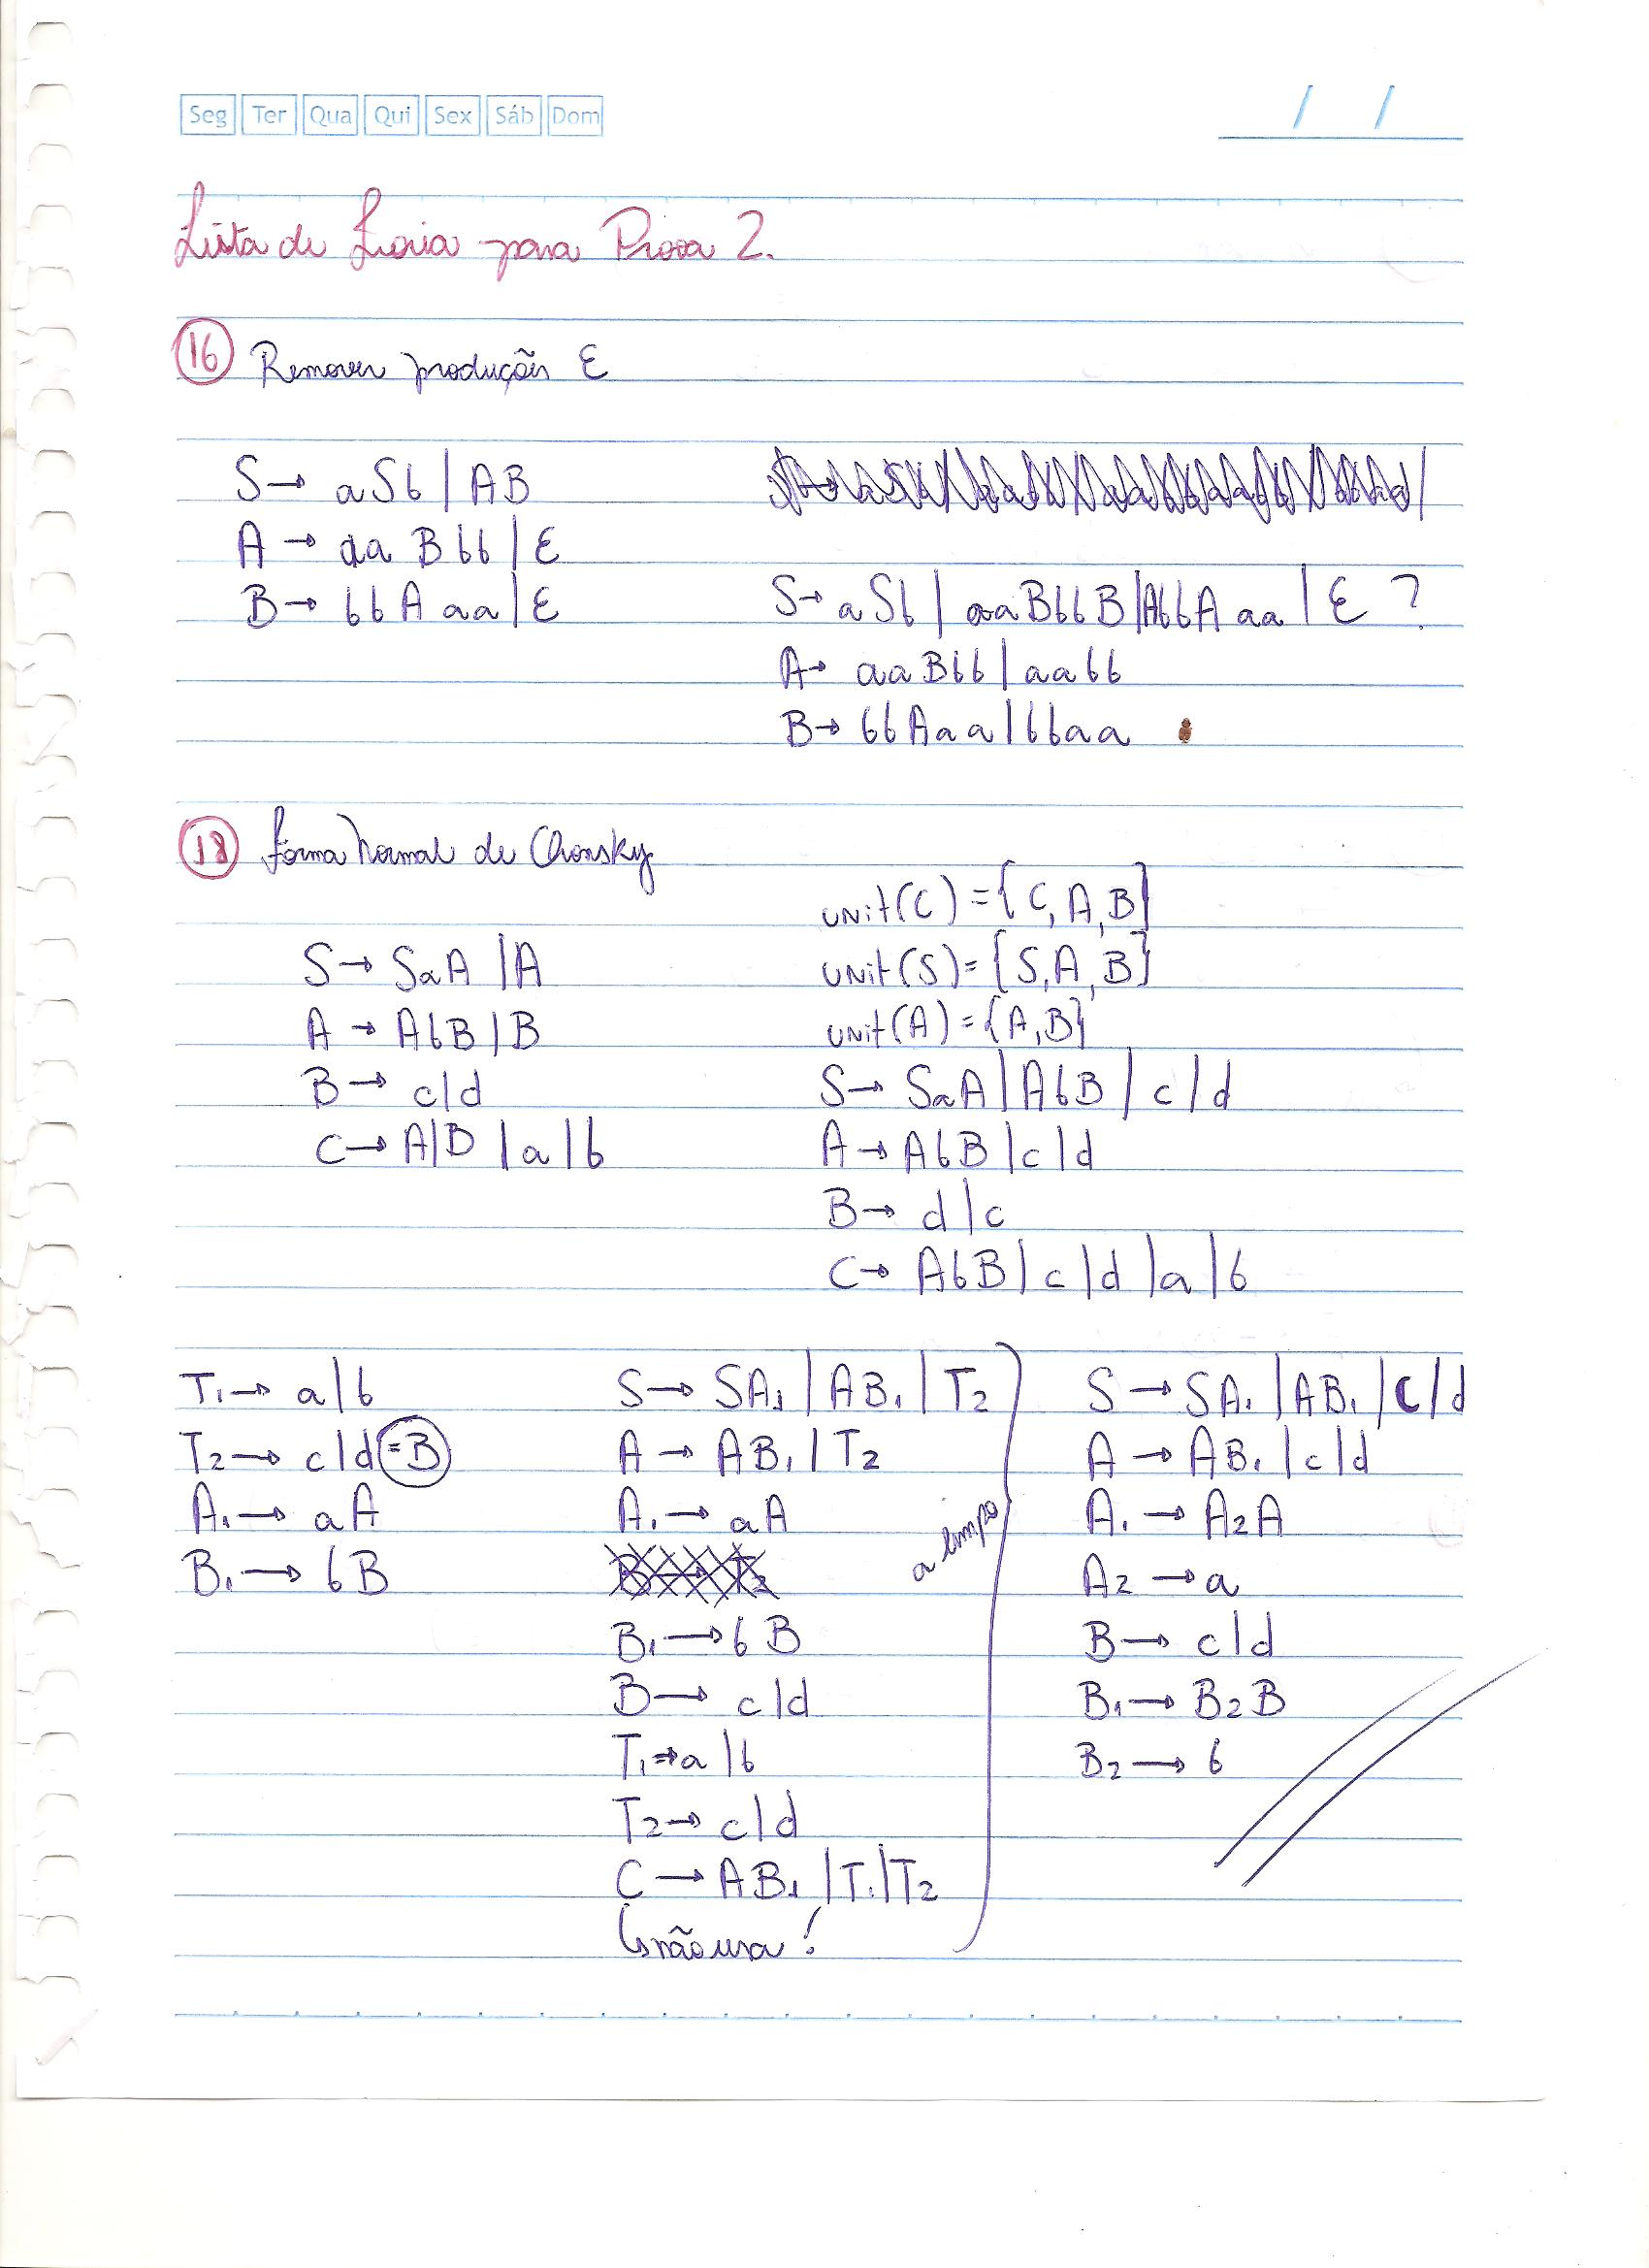 Seg Ter Qua Qui Sex Sáb Dom / /
Lista de Teoria para Prova 2.
16 Remover produções ε
S → aSb | AB
A → aaBbb | ε
B → bbAaa | ε
S → aSb | aaBbbB | AbbAaa | ε ?
A → aaBbb | aabb
B → bbAaa | bbaa
18 Forma Normal de Chonsky
S → SaA | A
A → AbB | B
B → c | d
C → A | B | a | b
unit(C) = {C, A, B}
unit(S) = {S, A, B}
unit(A) = {A, B}
S → SaA | AbB | c | d
A → AbB | c | d
B → d | c
C → AbB | c | d | a | b
T₁ → a | b
T₂ → c | d = B
A₁ → aA
B₁ → bB
S → SA₁ | AB₁ | T₂
A → AB₁ | T₂
A₁ → aA
B₁ → bB
B → c | d
T₁ → a | b
T₂ → c | d
C → AB₁ | T₁ | T₂
↳ não usa!
a limpo
S → SA₁ | AB₁ | c | d
A → AB₁ | c | d
A₁ → A₂A
A₂ → a
B → c | d
B₁ → B₂B
B₂ → b